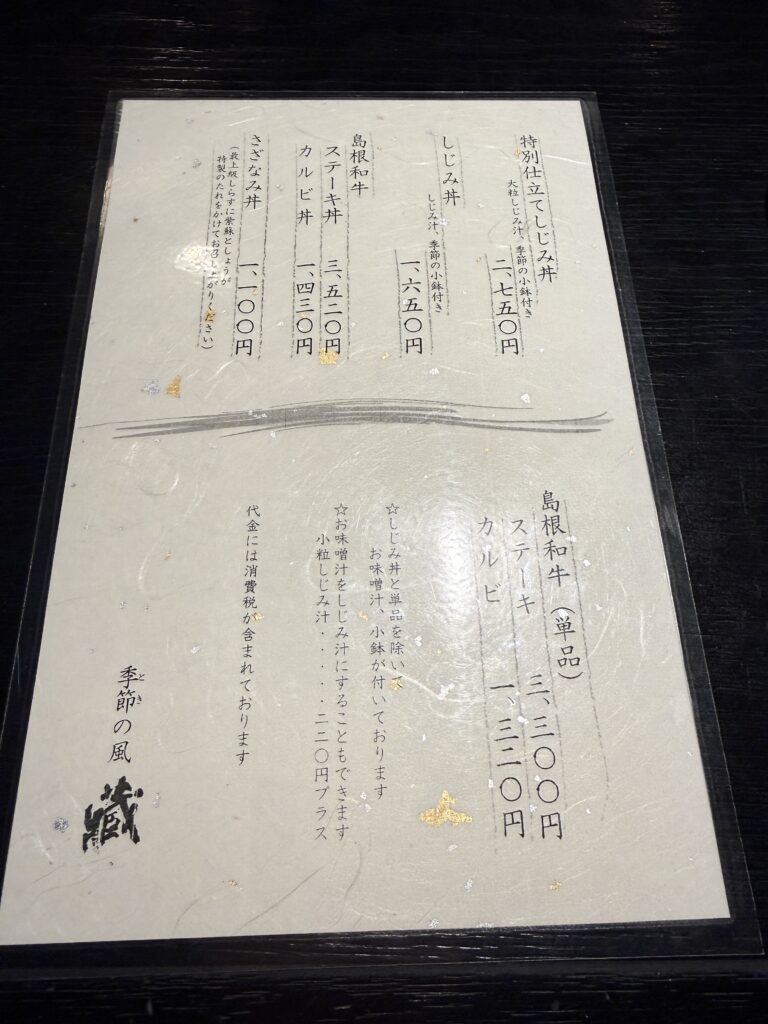 特別仕立てしじみ丼
大粒しじみ汁、季節の小鉢付き
二、七五〇円
しじみ丼
しじみ汁、季節の小鉢付き
一、六五〇円
島根和牛
ステーキ丼 三、五二〇円
カルビ丼 一、四三〇円
さざなみ丼 一、一〇〇円
（最上級しらすに紫蘇としょうが
特製のたれをかけてお召し上がりください）
島根和牛（単品）
ステーキ 三、三〇〇円
カルビ 一、三二〇円
☆しじみ丼と単品を除いて
お味噌汁、小鉢が付いております
☆お味噌汁をしじみ汁にすることもできます
小粒しじみ汁・・・・・二二〇円プラス
代金には消費税が含まれております
季節の風
とき
藏